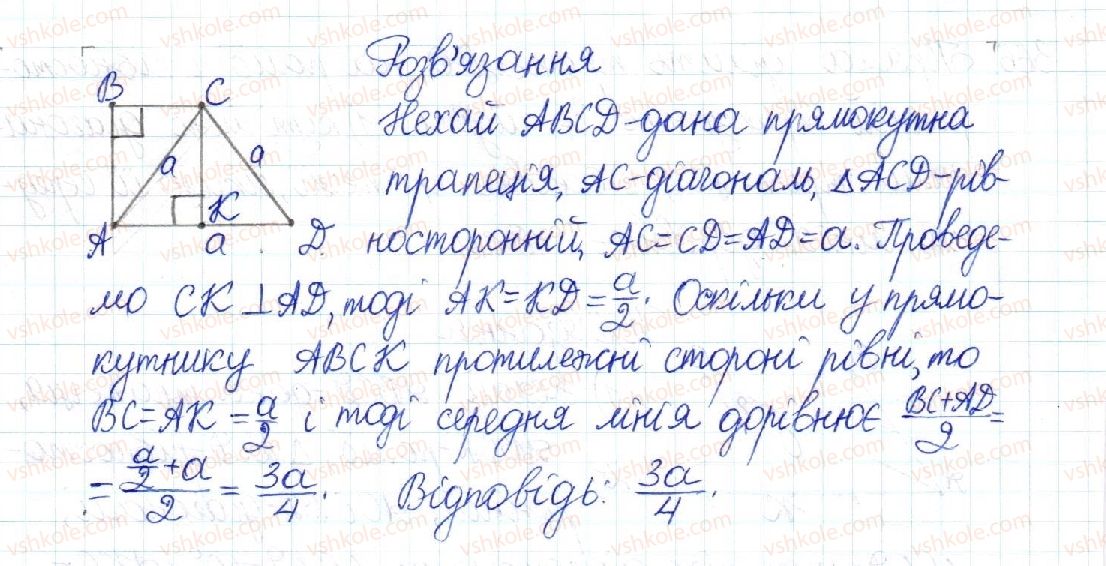 Розв'язання
B C
Нехай ABCD-дана прямокутна
a a
трапеція, AC-діагональ, △ACD-рів-
K
A a D носторонній, AC=CD=AD=a. Проведе-
мо CK⊥AD, тоді AK=KD=a/2. Оскільки у прямо-
кутнику ABCK протилежні стороні рівні, то
BC=AK=a/2 і тоді середня лінія дорівнює (BC+AD)/2=
=(a/2+a)/2=3a/4. Відповідь: 3a/4.
vshkole.com